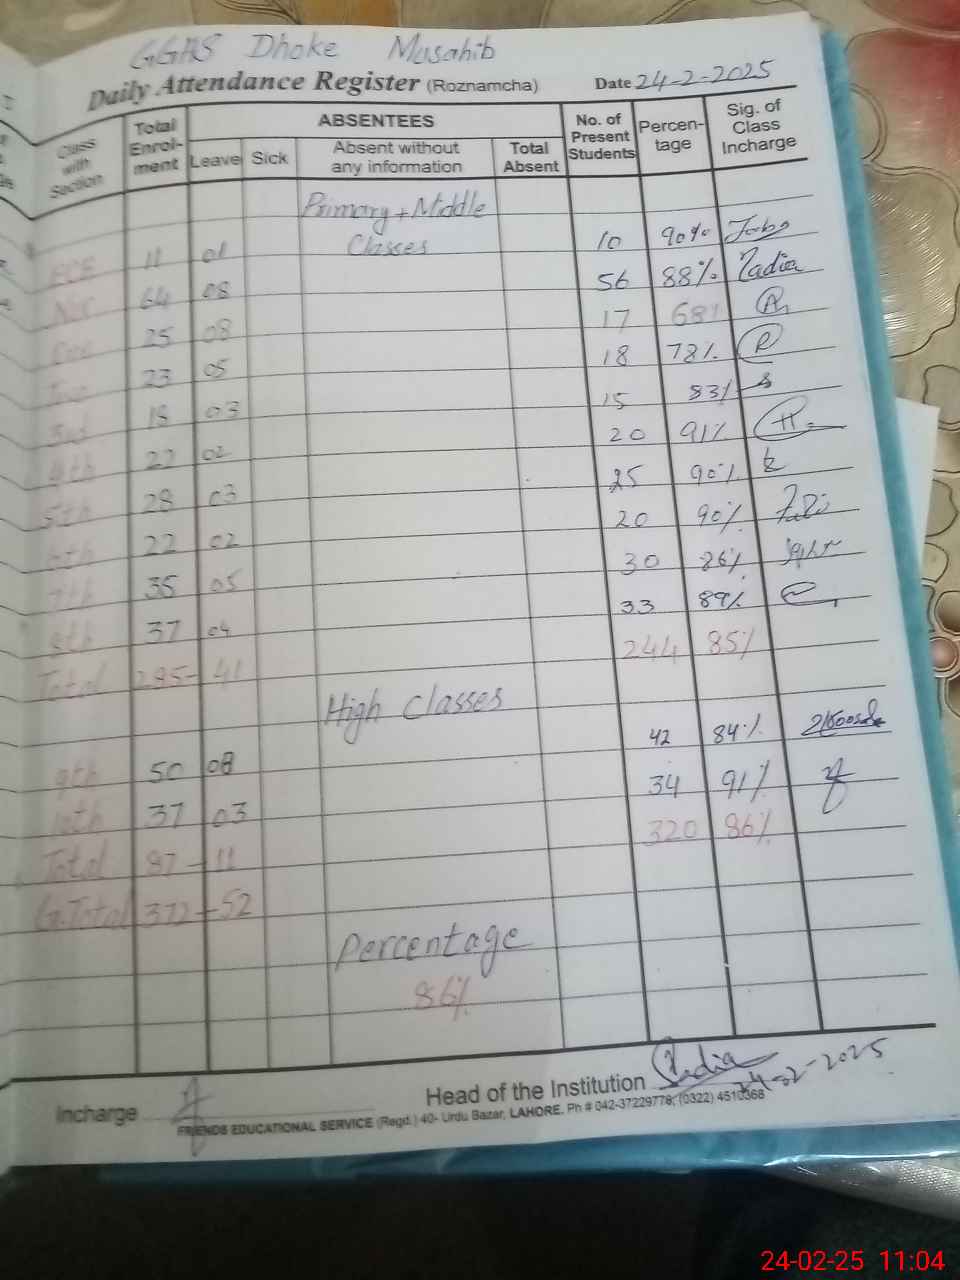 GGHS Dhoke Musahib
Daily Attendance Register (Roznamcha) Date 24-2-2025
Class with Section Total Enrol-ment ABSENTEES No. of Present Students Percen-tage Sig. of Class Incharge
Leave Sick Absent without any information Total Absent
Primary + Middle Classes
ECE 11 01 10 90%
Nur 64 08 56 88% Zadia
One 25 08 17 68%
Two 23 05 18 78% P
3rd 18 03 15 83% s
4th 22 02 20 91% H.
5th 28 03 25 90%
6th 22 02 20 90%
7th 35 05 30 86%
8th 37 04 33 89%
Total 285- 41 244 85%
High Classes
9th 50 08 42 84%
10th 37 03 34 91%
Total 87 - 11 320 86%
G.Total 372 - 52
Percentage
86%
Incharge Head of the Institution 24-02-2025
FRIENDS EDUCATIONAL SERVICE (Regd.) 40- Urdu Bazar, LAHORE. Ph # 042-37229778, (0322) 4510368
24-02-25 11:04